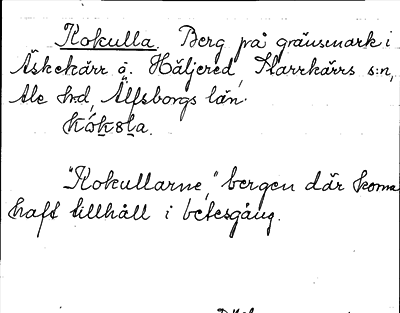 Kokulla. Berg på gränsmark i
Äskekärr o. Häljered, Starrkärrs s:n,
Ale hrd, Älfsborgs län.
kók8la.
"Kokullarne," bergen där korna
haft tillhåll i betesgång.